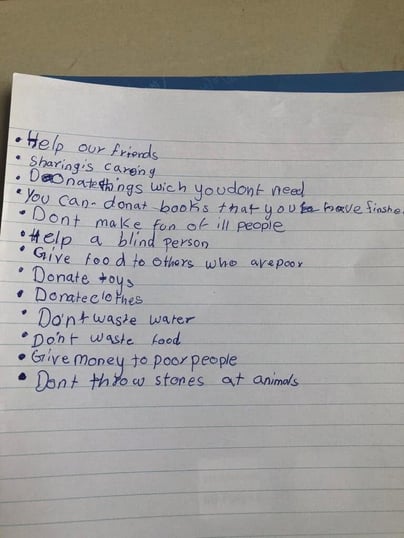 • Help our friends
• Sharing is careing
• Donate things wich you dont need
• You can donat books that you have finshe
• Dont make fun of ill people
• Help a blind person
• Give food to others who are poor
• Donate toys
• Donate clothes
• Do'nt waste water
• Do'nt waste food
• Give money to poor people
• Dont throw stones at animals